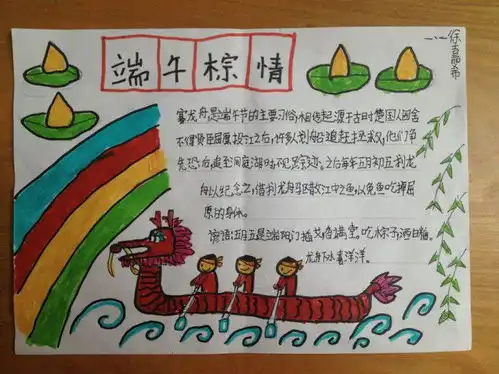 端午棕情
一.一徐嘉希
赛龙舟是端午节的主要习俗,相传起源于古时楚国人因舍
不得贤臣屈原投江之后,许多人划船追赶拯救,他们争
先恐后追至洞庭湖时不见踪迹。之后每年五月初五划龙
舟以纪念之,借划龙舟驱散江中之鱼,以免鱼吃掉屈
原的身体。
谚语:五月五是端阳,门插艾,香满堂。吃棕子,洒白糖。
龙舟下水喜洋洋。